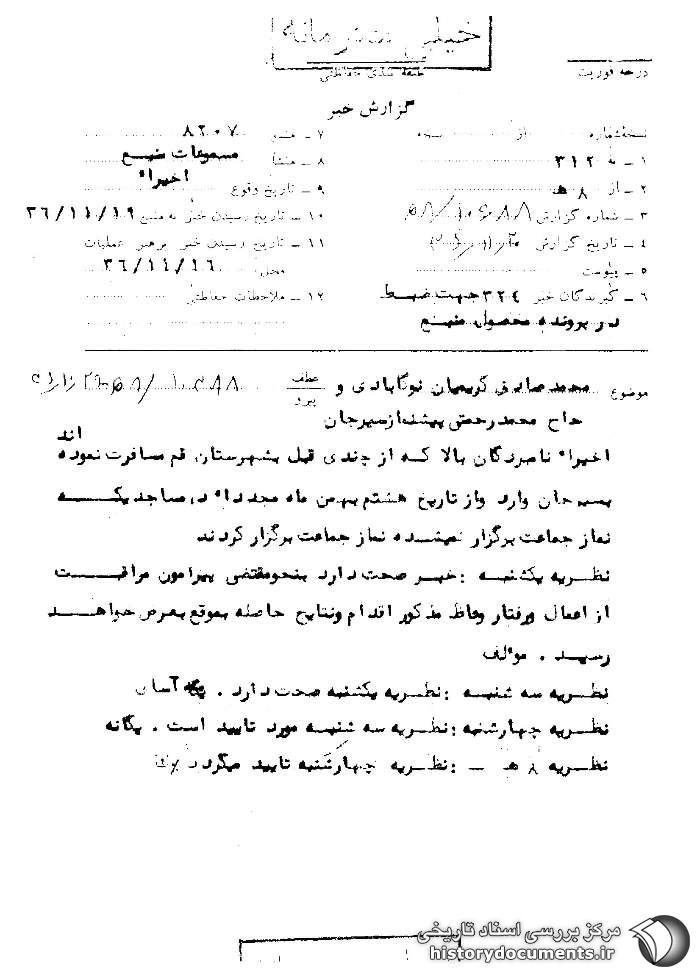 خیلی محرمانه
طبقه بندی حفاظتی
درجه فوریت
گزارش خبر
نسخه شماره از
۱ ـ به ۳۱۲
۲ ـ از ۸ هـ
۳ ـ شماره گزارش
۴ ـ تاریخ گزارش
۵ ـ پیوست
۶ ـ گیرندگان خبر ۳۲۴ جهت ضبط
در پرونده محصول منبع
۷ ـ منبع ۸۲۰۷
۸ ـ منشأ مسموعات منبع
۹ ـ تاریخ وقوع اخیراً
۱۰ ـ تاریخ رسیدن خبر به منبع ۳۶/۱۱/۱۹
۱۱ ـ تاریخ رسیدن خبر برهبر عملیات
محل ۳۶/۱۱/۱۶
۱۲ ـ ملاحظات حفاظتی
موضوع محمد صادق کریمیان نوکابادی و عطف
پیرو
حاج محمد رحمتی پیشنماز سیرجان
اخیراً نامبردگان بالا که از چندی قبل بشهرستان قم مسافرت نموده اند
بسیرجان وارد واز تاریخ هشتم بهمن ماه مجدداً در مساجدیکه
نماز جماعت برگزار نمیشده نماز جماعت برگزار کردند
نظریه یکشنبه : خبر صحت دارد بنحو مقتضی پیرامون مراقبت
از اعمال ورفتار وعاظ مذکور اقدام ونتایج حاصله بموقع بعرض خواهد
رسید . مؤلف
نظریه سه شنبه : نظریه یکشنبه صحت دارد . آسان
نظریه چهارشنبه : نظریه سه شنبه مورد تایید است . یگانه
نظریه ۸ هـ ـ : نظریه چهارشنبه تایید میگردد
مرکز بررسی اسناد تاریخی
historydocuments.ir